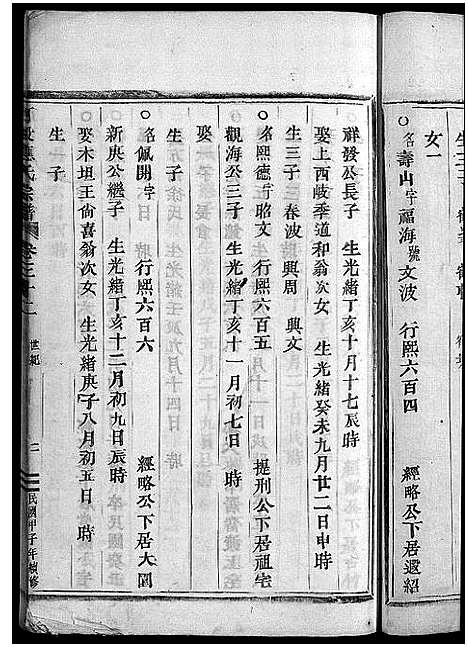 女一
名壽山字福海號文波 行熙六百四 經略公下居遐紹
祥發公長子 生光緒丁亥十月十七辰時
娶上西岐季道和翁次女 生光緒癸未九月廿二日申時
生三子 春波 興周 興文
名熙德字昭文 行熙六百五 提刑公下居祖宅
觀海公三子 生光緒丁亥十一月初七日 時
娶
生 子
名佩開字 行熙六百六 經略公下居大園
新庚公繼子 生光緒丁亥十二月初九日辰時
娶木坦王尙喜翁次女 生光緒庚子八月初五日 時
生 子
氏宗譜 卷之十二 世紀 民國甲子年續修